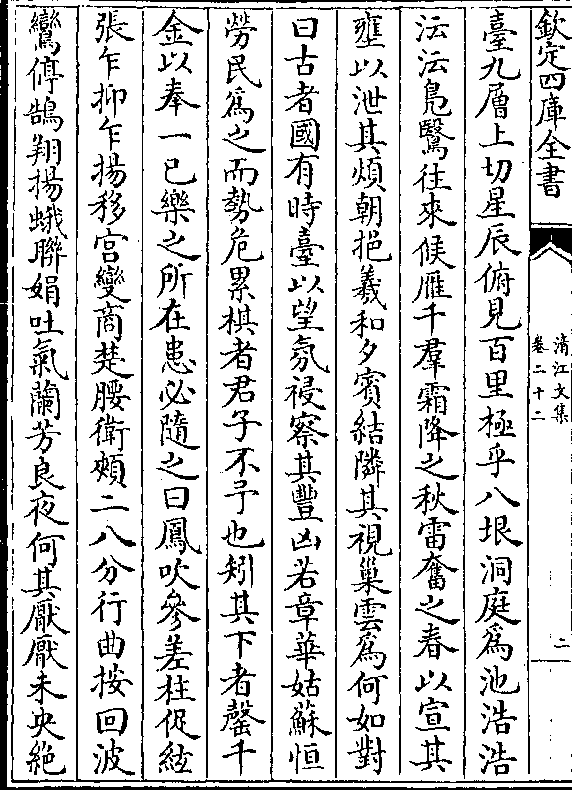 欽定四庫全書
清江文集
卷二十二
二
臺九層上切星辰俯見百里極乎八垠洞庭爲池浩浩
沄沄鳬鷖往來候雁千羣霜降之秋雷奮之春以宣其
壅以泄其煩朝挹羲和夕賓結隣其視巢雲爲何如對
曰古者國有時臺以望氛祲察其豐凶若章華姑蘇恒
勞民爲之而勢危累棋者君子不予也矧其下者罄千
金以奉一已樂之所在患必隨之曰鳳吹參差柱促絃
張乍抑乍揚移宮變商楚腰衛頰二八分行曲按回波
鸞停鵠翔揚蛾聯娟吐氣蘭芳良夜何其厭厭未央絶